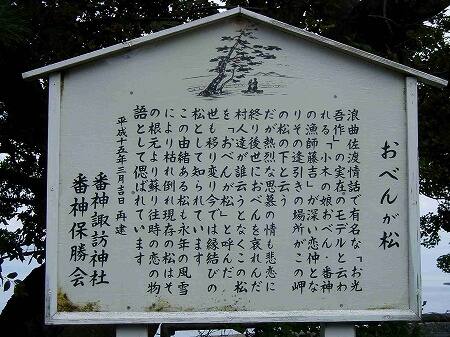 おべんが松
浪曲佐渡情話で有名な「お光
吾作」の実在のモデルと云わ
れる、小木の娘おべん・番神
の漁師藤吉」が深い恋仲とな
りその逢引きの場所がこの岬
の松の下と云う
だが熱烈な思慕の情も悲恋に
終り後世におべんを哀れんだ
村人達が誰云うとなくこの松
を「おべんが松」と呼んだ
世も移り変り今では縁結びの
松として知られています
この由緒ある松も永年の風雪
により枯れ倒れ現在の松はそ
の根元より蘇り往時の恋の物
語として偲ばれています
平成十五年三月吉日 再建
番神諏訪神社
番神保勝会